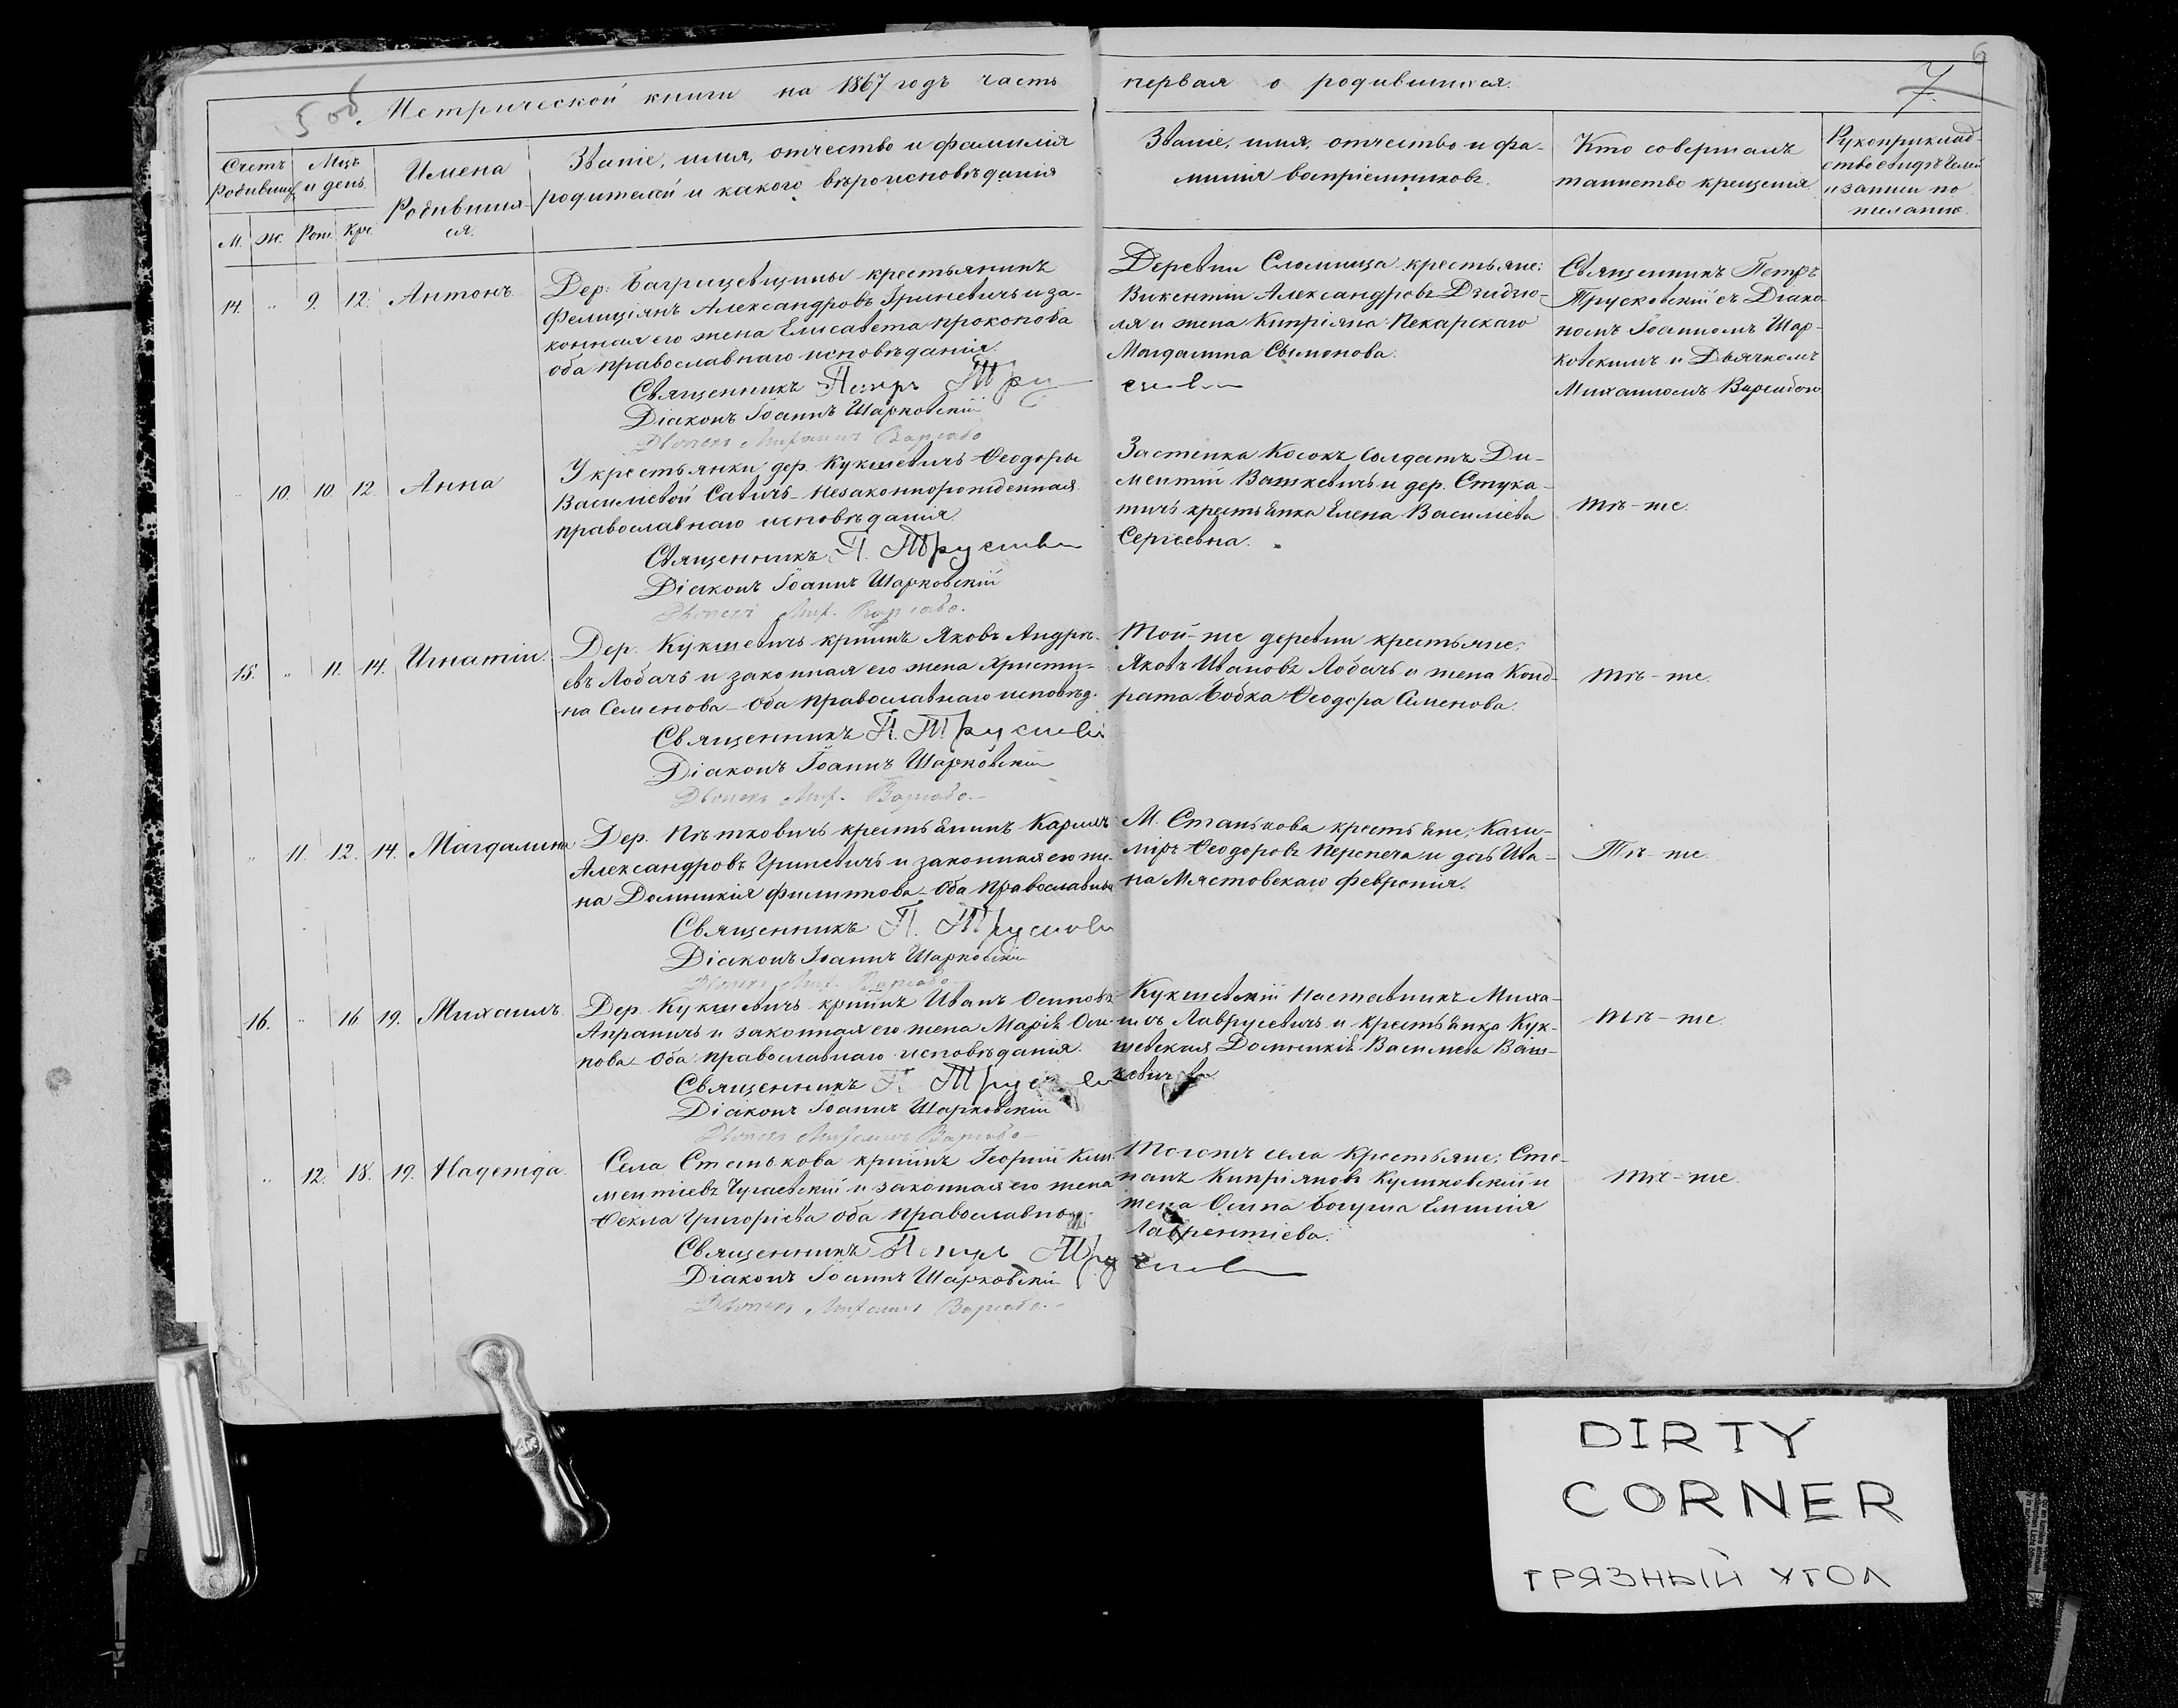 5 об.
6
7
Метрической книги на 1867 годъ часть первая о родившихся.
Счетъ Родившихся
Мцъ и день.
Имена Родившихся.
Званіе, имя, отчество и фамилія родителей и какого вѣроисповѣданія
Званіе, имя, отчество и фамилія воспріемниковъ.
Кто совершалъ таинство крещенія.
Рукоприкладство свидѣтелей и записи по желанію.
М. Ж. Рож. Кре.
14. „ 9. 12. Антонъ.
Дер: Багрицевщины крестьянинъ
Фелиціянъ Александровъ Гриневичъ и за-
конная его жена Елисавета Прокопова
оба православнаго исповѣданія.
Священникъ Петръ Трусковскій
Діаконъ Іоаннъ Шарковскій
Дьячекъ Михаилъ Варсабо
Деревни Сломница крестьяне:
Викентій Александровъ Дзидзю-
ля и жена Кипріяна Пекарскаго
Магдалина Сымонова.
Священникъ Петръ
Трусковскій съ Діако-
номъ Іоанномъ Шар-
ковскимъ и Дьячкомъ
Михаиломъ Варсабою
„ 10. 10. 12. Анна
У крестьянки дер. Кукшевичъ Ѳеодоры
Василіевой Савичъ - незаконнорожденная
православнаго исповѣданія.
Священникъ П. Трусковскій
Діаконъ Іоаннъ Шарковскій
Дьячекъ Мих. Варсабо.
Застенка Косокъ Солдатъ Ди-
ментій Вашкевичъ и дер. Стука-
тичъ крестьянка Елена Василіева
Сергеевна.
тѣ-же.
15. „ 11. 14. Игнатій.
Дер. Кукшевичъ кр–нинъ Яковъ Андре-
евъ Лобачъ и законная его жена Христи-
на Семенова - Оба православнаго исповѣд.
Священникъ П. Трусковскій
Діаконъ Іоаннъ Шарковскій
Дьячекъ Мих. Варсабо.-
Той-же деревни крестьяне,
Яковъ Ивановъ Лобачъ и жена Конд-
рата Бобка Ѳеодора Семенова.
тѣ-же.
„ 11. 12. 14. Магдалина
Дер. Пѣтковичъ крестьянинъ Карпъ
Александровъ Гриневичъ и законная его же-
на Домникія Филиппова - Оба православные
Священникъ П. Трусковскій
Діаконъ Іоаннъ Шарковскій
Дьячекъ Мих. Варсабо
М. Станькова крестьяне, Кази-
міръ Ѳеодоровъ Перепеча и дочь Ива-
на Мястовскаго Февронія.
Тѣ-же.
16. „ 16. 19. Михаилъ.
Дер. Кукшевичъ кр–нинъ Иванъ Осиповъ
Апраничъ и законная его жена Марія Оси-
пова - Оба православнаго исповѣданія.
Священникъ П. Трусковскій
Діаконъ Іоаннъ Шарковскій
Дьячекъ Михаилъ Варсабо -
Кукшевскій Наставникъ Миха-
илъ Лаврусевичъ и крестьянка Кук-
шевская Домникія Василіева Ваш-
кевичъ
тѣ-же.
„ 12. 18. 19. Надежда.
Села Станькова кр–нинъ Георгій Кли-
ментіевъ Чугаевскій и законная его жена
Ѳекла Григоріева оба православнаго
Священникъ Петръ Трусковскій
Діаконъ Іоаннъ Шарковскій
Дьячекъ Михаилъ Варсабо.-
Тогожъ села крестьяне: Сте-
панъ Кипріяновъ Куликовскій и
жена Осипа Богуша Емилія
Лаврентіева.
тѣ-же.
DIRTY
CORNER
ГРЯЗНЫЙ УГОЛ